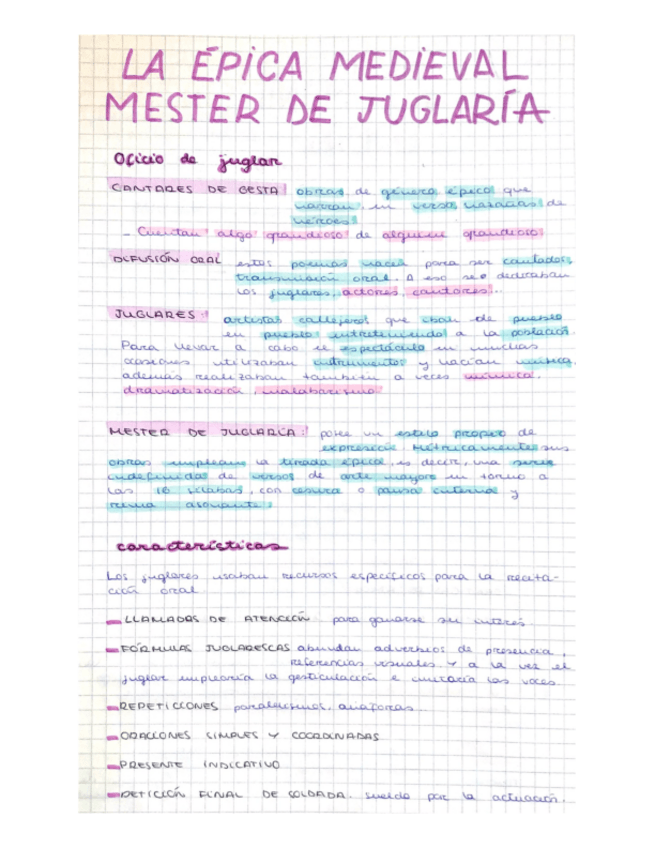 LA ÉPICA MEDIEVAL
MESTER DE JUGLARÍA
Oficio de juglar
CANTARES DE GESTA: obras de género épico que
narran, en verso, hazañas de
héroes
- Cuentan algo grandioso de alguien grandioso
DIFUSIÓN ORAL estos poemas nacen para ser cantados,
transmisión oral. A eso se dedicaban
los juglares, actores, cantores...
JUGLARES: artistas callejeros que iban de pueblo
en pueblo entreteniendo a la población.
Para llevar a cabo el espectáculo en muchas
ocasiones utilizaban instrumentos y hacían música,
además realizaban también a veces mímica,
dramatización, malabarismo.
MESTER DE JUGLARÍA: posee un estilo propio de
expresión. Métricamente sus
obras emplean la tirada épica, es decir, una serie
indefinida de versos de arte mayor en torno a
las 16 sílabas, con cesura o pausa interna y
rima asonante.
características
Los juglares usaban recursos específicos para la recita-
ción oral
LLAMADAS DE ATENCIÓN para ganarse su interés
FÓRMULAS JUGLARESCAS abundan adverbios de presencia,
referencias visuales. Y a la vez el
juglar emplearía la gesticulación e imitaría las voces.
REPETICIONES paralelismos, anáforas...
ORACIONES SIMPLES Y COORDINADAS
PRESENTE INDICATIVO
PETICIÓN FINAL DE SOLDADA. sueldo por la actuación.